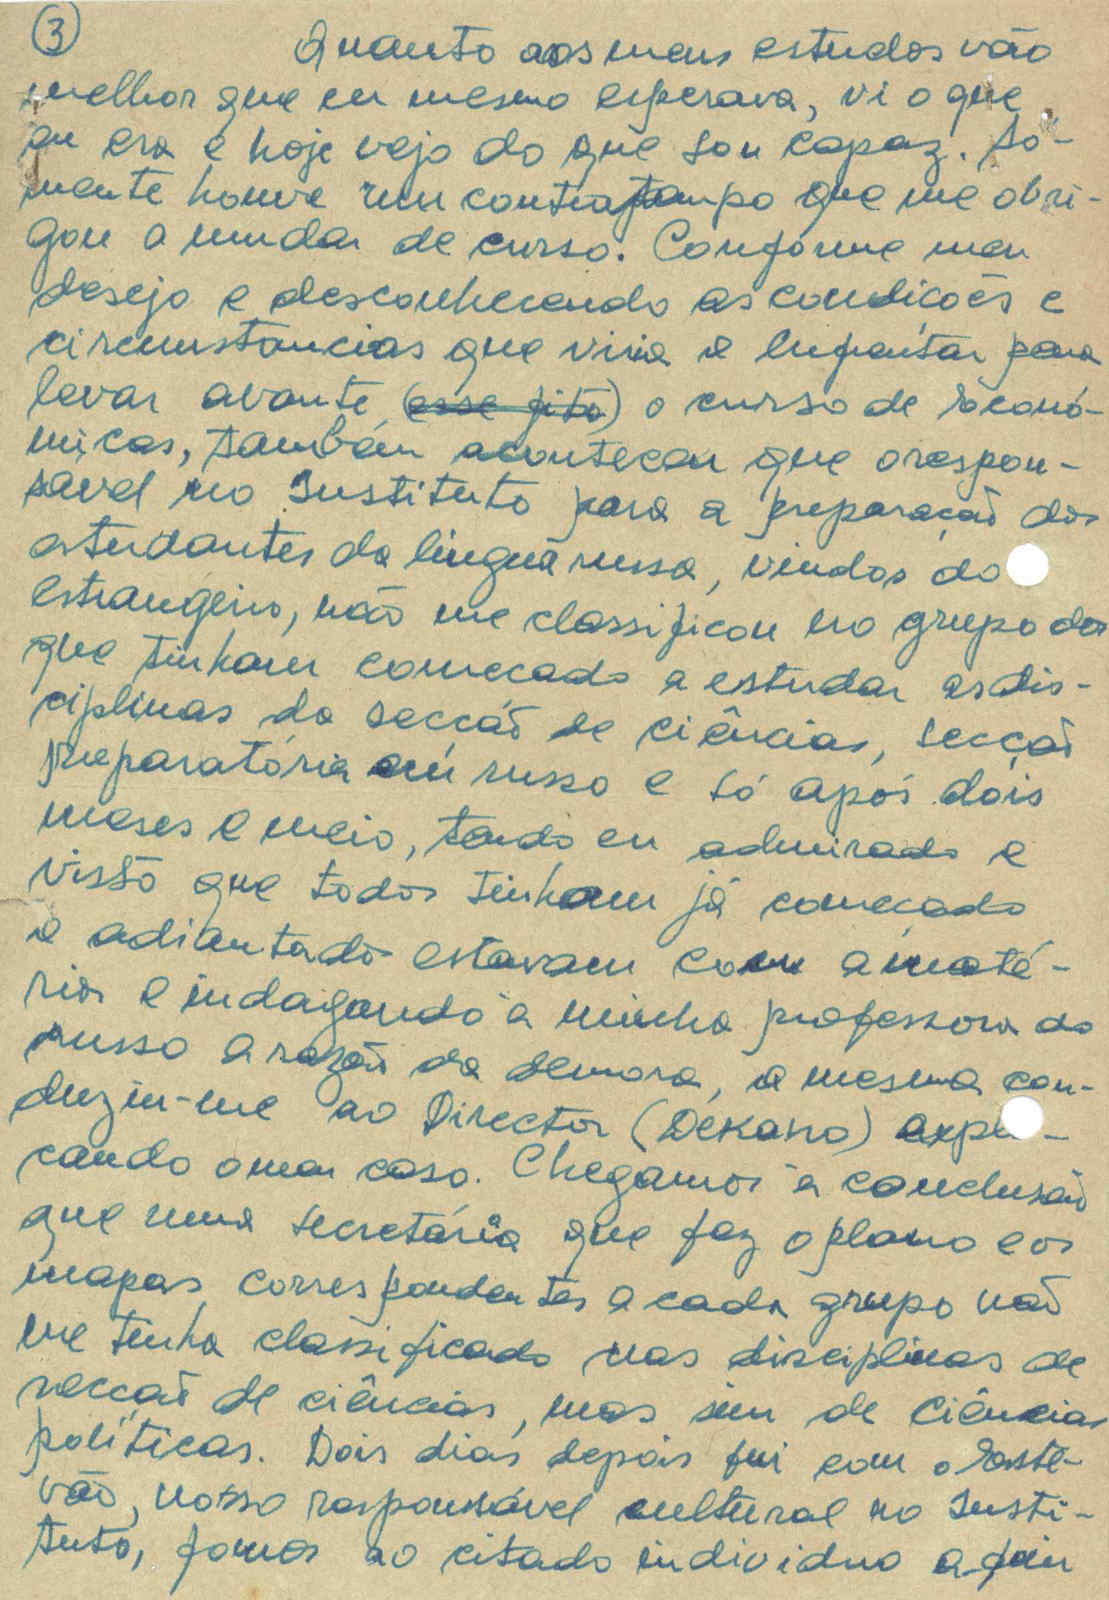 3
Quanto aos meus estudos vão
melhor que eu mesmo esperava, vi o que
eu era e hoje vejo do que sou capaz. Sò-
mente houve um contratempo que me obri-
gou a mudar de curso. Conforme meu
desejo e desconhecendo as condicões e
circunstancias que viria a enfrentar para
levar avante (esse fito) o curso de Econó-
micas, também aconteceu que o respon-
sável no Instituto para a preparação dos
estudantes da lingua russa, vindos do
estrangéiro, não me classificou no grupo dos
que tinham comecado a estudar as dis-
ciplinas da seccão de ciências, secção
preparatória em russo e só após dois
meses e meio, tendo eu admirado e
visto que todos tinham já comecado
e adiantado estavam com a maté-
ria e indagando à minha professora do
russo a razão da demora, a mesma con-
duziu-me ao Director (Dekano) expli-
cando o meu caso. Chegamos à conclusão
que uma secretária que faz o plano e os
mapas correspondentes a cada grupo não
me tinha classificado nas disciplinas de
seccão de ciências, mas sim de Ciências
políticas. Dois dias depois fui com o Esté-
vão, nosso responsável cultural no Insti-
tuto, fomos ao citado individuo a fim